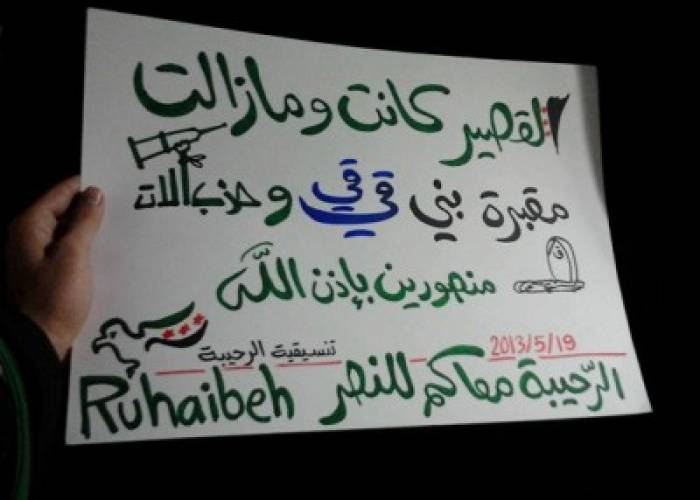 القصير كانت ومازالت
مقبرة بني قي قي وحزب الات
منصورين بإذن الله
تنسيقية الرحيبة 2013/5/19
الرّحيبة معاكم للنصر Ruhaibeh